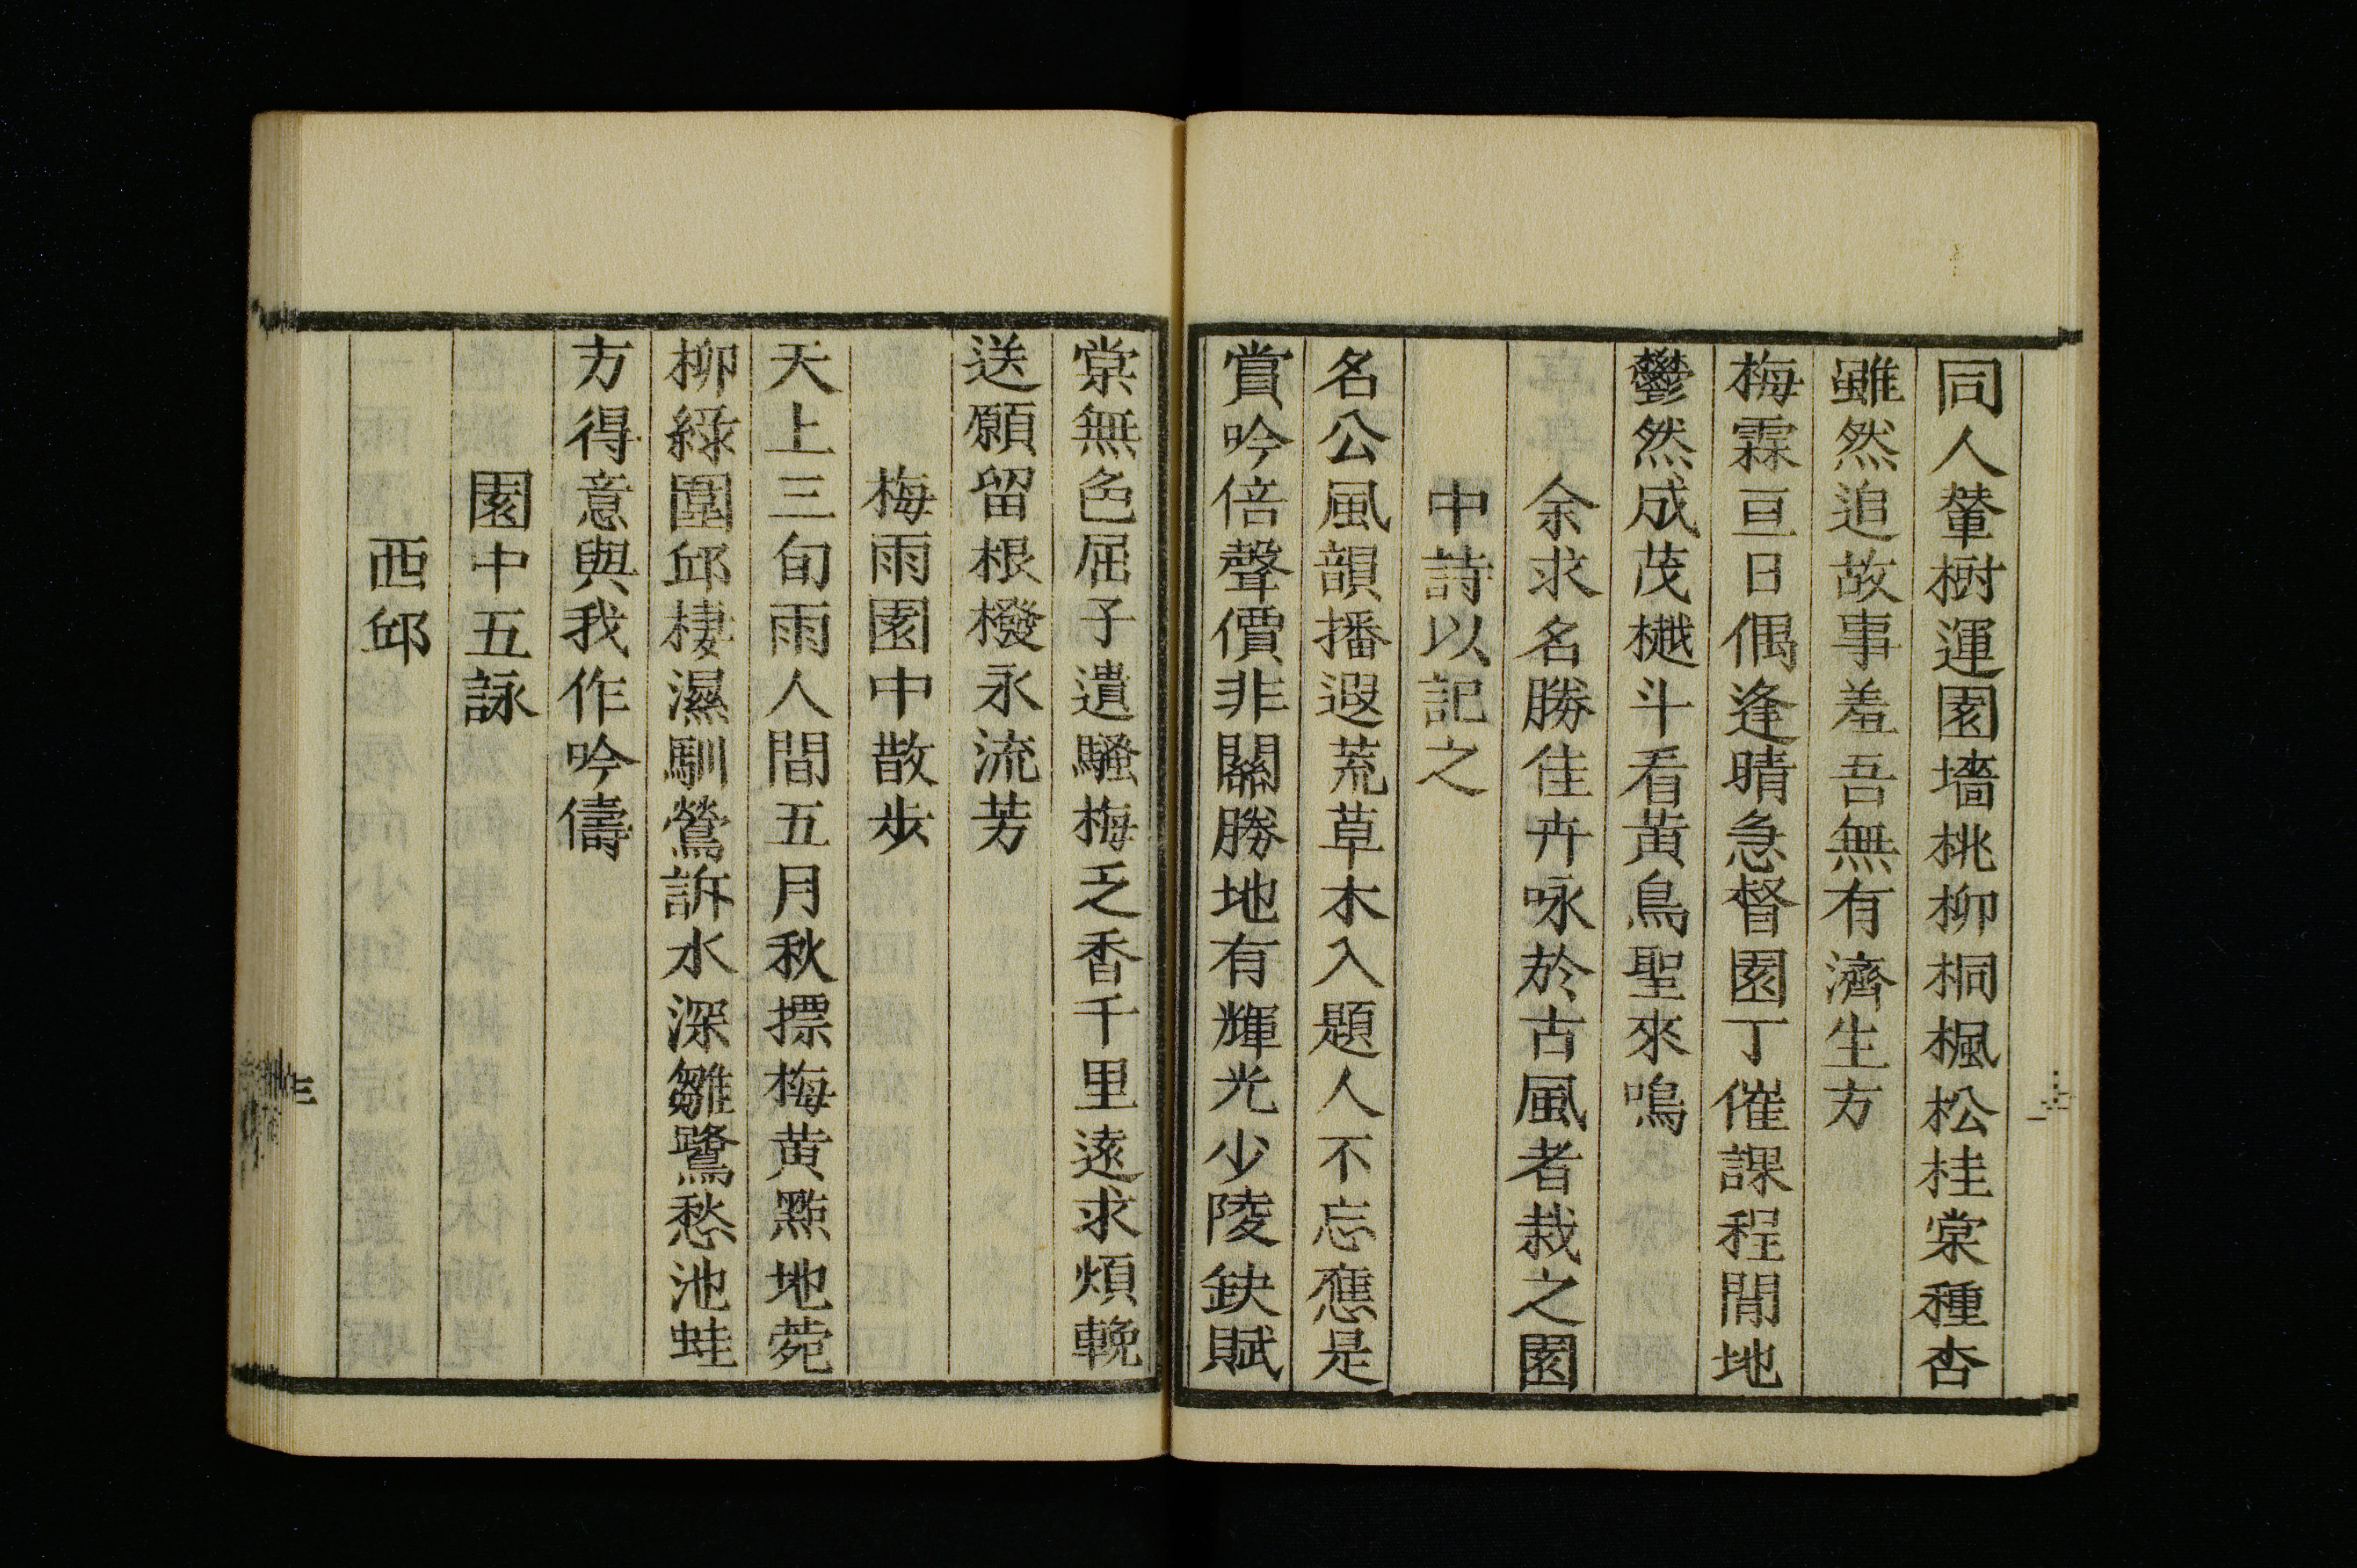 同人輦樹運園墻桃柳桐楓松桂棠種杏
雖然追故事羞吾無有濟生方
梅霖亘日偶逢晴急督園丁催課程閒地
鬱然成茂樾斗看黃鳥聖來鳴
余求名勝佳卉咏於古風者栽之園
中詩以記之
名公風韻播遐荒草木入題人不忘應是
賞吟倍聲價非關勝地有輝光少陵缺賦
棠無色屈子遺騷梅乏香千里遠求煩輓
送願留根橃永流芳
梅雨園中散步
天上三旬雨人間五月秋摽梅黃點地菀
柳綠圍邱棲濕馴鶯訴水深雛鷺愁池蛙
方得意與我作吟儔
園中五詠
西邱
三